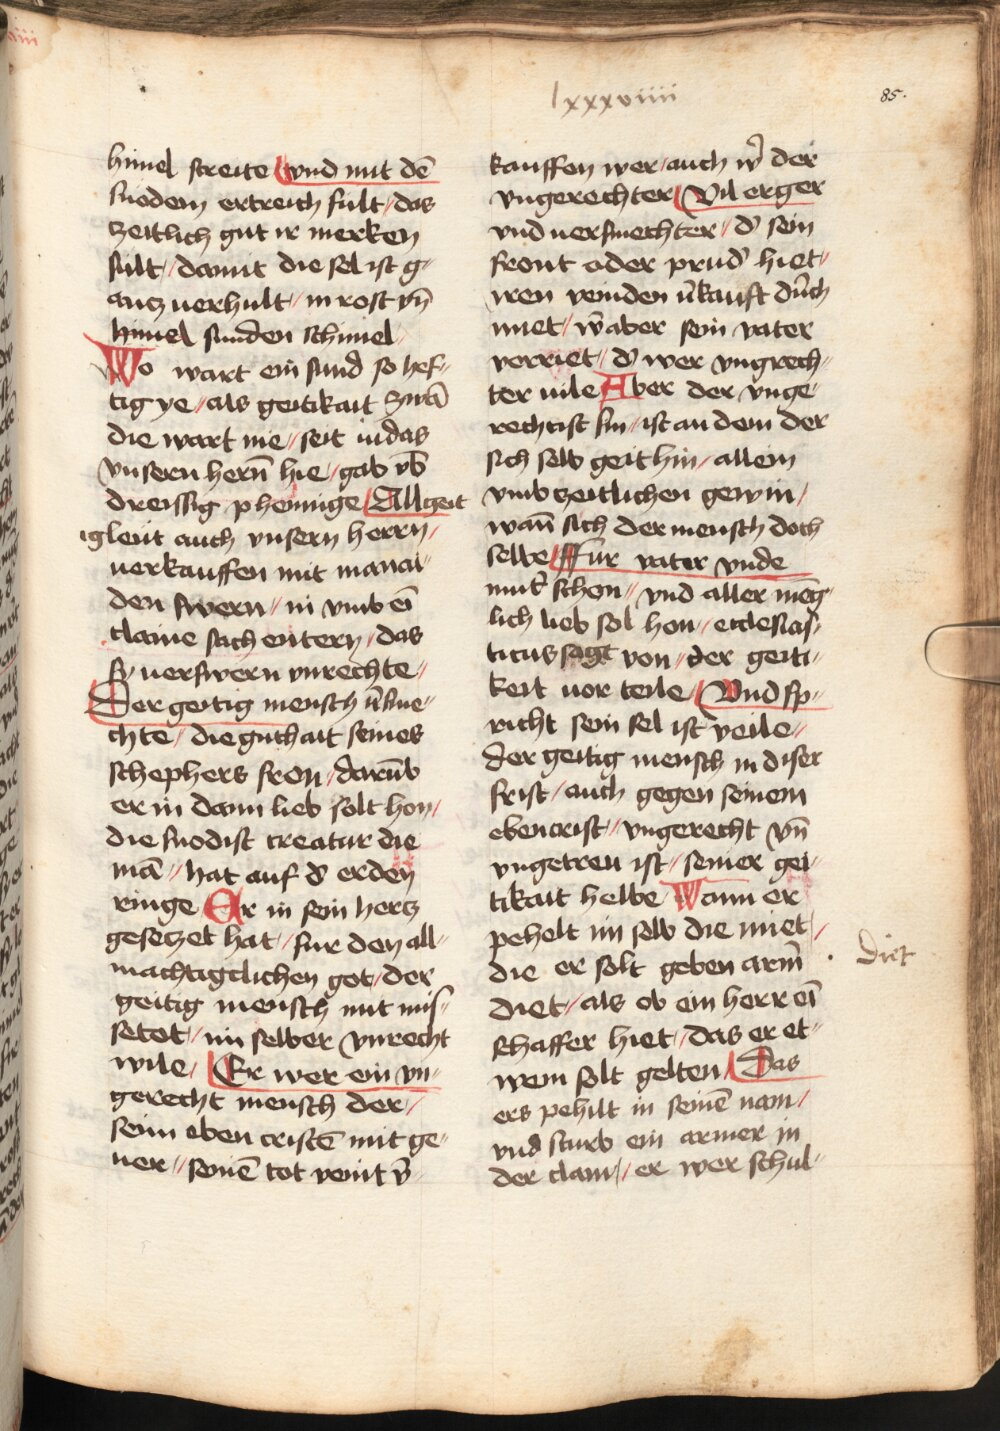 lxxxviiii
85.
himel streite / vnd mit dē
snodem ertreich fult / das
zeitlich gut ir merken
sult // damit die sel ist g//
antz verhult // in rost vn̄
himel sunden schimel
Wo wart ein sund so hef//
tig ye // als geitikait zwar̄
die wart nie // seit iudas
vnsern hern̄ hie / gab vb̄
dreissig phennige / All geit
ig leut auch vnsern herrn /
verkauffen mit manai//
den swern // in vmb ei̅
claine sach entern / das
sy verswern vnrechte //
Der geitig mensch v̄sme//
chte / die guthait seines
schephers fron / darūb
er in dann lieb solt hon /
die snodist creatur die
mā // hat auf d̓ erden
ringe Er in sein hertz
gesetzet hat / fur den all//
machtigclichen got / der
geitig mensch mit mis//
setot / im selber vnrecht
wile / Er wer ein vn//
gerecht mensch der //
seim eben cristē mit ge//
uer // seinē tot veint v̄//
kauffen wer / auch w̓ der
vngerechter / Vil erger
vnd versmechter // d̓ sein
freunt oder prud̓ hiet //
iren veinden v̄kauft durch
miet / w̄ aber sein vater
verriet // d̓ wer vngrech//
ter vile Aber der vnge//
rechtist sin // ist an dem der
sich selb geit hin / allein
vmb zeitlichen gewin /
wan̄ sich der mensch doch
selbe / Für vater vnde
mut̓ schon // vnd aller men̄g//
lich lieb sol hon // ecclesias//
ticus sagt von // der geiti//
keit vor teile / Vnd sp//
richt sein sel ist veile //
der geitig mensch in diser
frist / auch gegen seinem
ebencrist // vngerecht vn̄
vngetreu ist // seiner gei//
tikait helbe Wann er
pehelt im selb die miet /
die er solt geben arm̄
diet // als ob ein herr ei̅
schaffer hiet / das er et//
wem solt gelten / Das
ers pehilt in seinē nam /
vnd sturb ein armer in
der clam // er wer schul//
diet